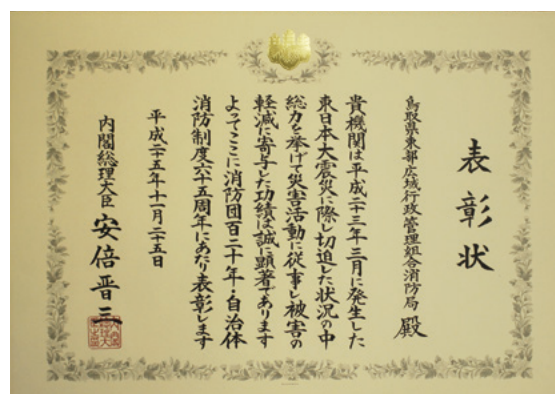 表彰状
鳥取県東部広域行政管理組合消防局 殿
貴機関は平成二十三年三月に発生した
東日本大震災に際し切迫した状況の中
総力を挙げて災害活動に従事し被害の
軽減に寄与した功績は誠に顕著であります
よってここに消防団百二十年・自治体
消防制度六十五周年にあたり表彰します
平成二十五年十一月二十五日
内閣総理大臣 安倍晋三